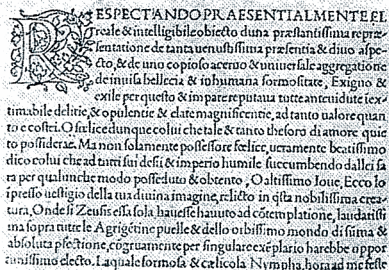 RESPECTANDO PRAESENTIALMENTE EL
reale & intelligibile obiecto duna præstantissima repræ-
sentatione de tanta uenustissima præsentia & diuo aspe-
cto, & de uno copioso aceruo & uniuersale aggregatione
de inuisa bellecia & inhumana formositate, Exiguo &
exile per questo & impare reputaua tutte anteuidute iex-
timabile delitie, & opulentie & elate magnificentie, ad tanto ualore quan-
to e costri. O fœlice dunque colui che tale & tanto thesoro di amore quie
to possiderae. Ma non solamente possessore fœlice, ueramente beatissimo
dico colui che ad tutti sui desii & imperio humile succumbendo dallei sa
ra per qualunche modo posseduto & obtento, O altissimo Ioue, Ecco lo
īpresso uestigio della tua diuina imagine, relicto in q̄sta nobilissima crea-
tura, Onde si Zeusis essa sola, hauesse hauuto ad cōtemplatione, laudatissi
ma sopra tutte le Agrigētine puelle & dello orbissimo mondo di sūma &
absoluta pfectione, cōgruamente per singulare exēplario harebbe oppor
tunissimo electo. La quale formosa & cælicola Nympha, hora ad me